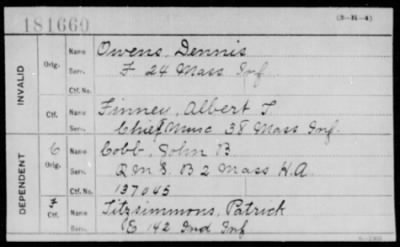 181660
(3—K—4)
INVALID
Orig.
Name Owens, Dennis
Serv. F 24 Mass Inf.
Ctf. No.
Ctf.
Name Finney, Albert T.
Serv. Chief Music 38 Mass Inf.
DEPENDENT
6
Orig.
Name Cobb, John B.
Serv. Q M S. B 2 Mass H.A.
Ctf. No. 137045
Ctf.
Name Fitzsimmons, Patrick
Serv. E 142 Ind Inf